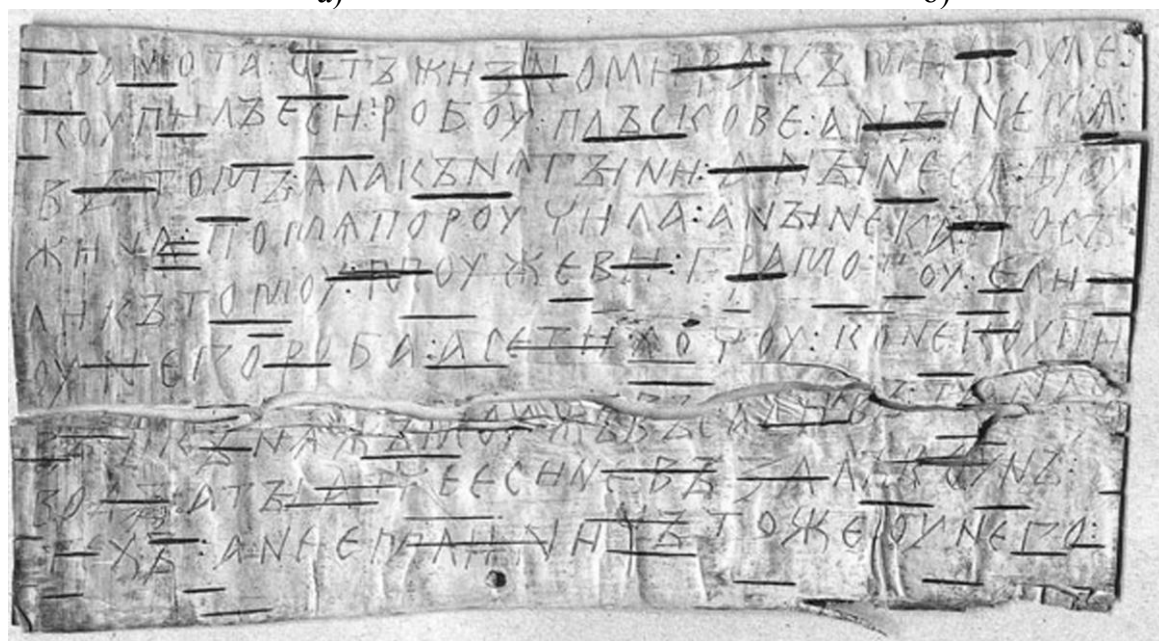 ГРАМОТА : ѠТЪ ЖИЗНОМИРА : КЪ МИКОУЛЕ :
КОУПИЛЪ ЕСИ : РОБОУ : ПЛЪСКОВЕ : А НꙐНЕ МѦ :
ВЪ ТОМЪ : ѦЛА КЪНѦГꙐНИ : А НꙐНЕ СѦ ДРОУ
ЖИНА : ПО МѦ ПОРОУЧИЛА : А НꙐНЕ КА : ПОСЪ
ЛИ КЪ ТОМОУ : МОУЖЕВИ : ГРАМОТОУ : ЕЛИ
ОУ НЕГО РОБА : А СЕ ТИ ХОЧОУ : КОНЕ КОУПИ
ВЪ : И КЪНѦЖЪ МОУЖЪ ВЪСАДИВЪ : ТА НА СЪ
ВОДꙐ : А ТꙐ АТЧЕ ЕСИ НЕ ВЪЗАЛЪ КОУНЪ :
ТЕХЪ : А НЕ ЕМЛИ : НИЧЪТО ЖЕ ОУ НЕГО :